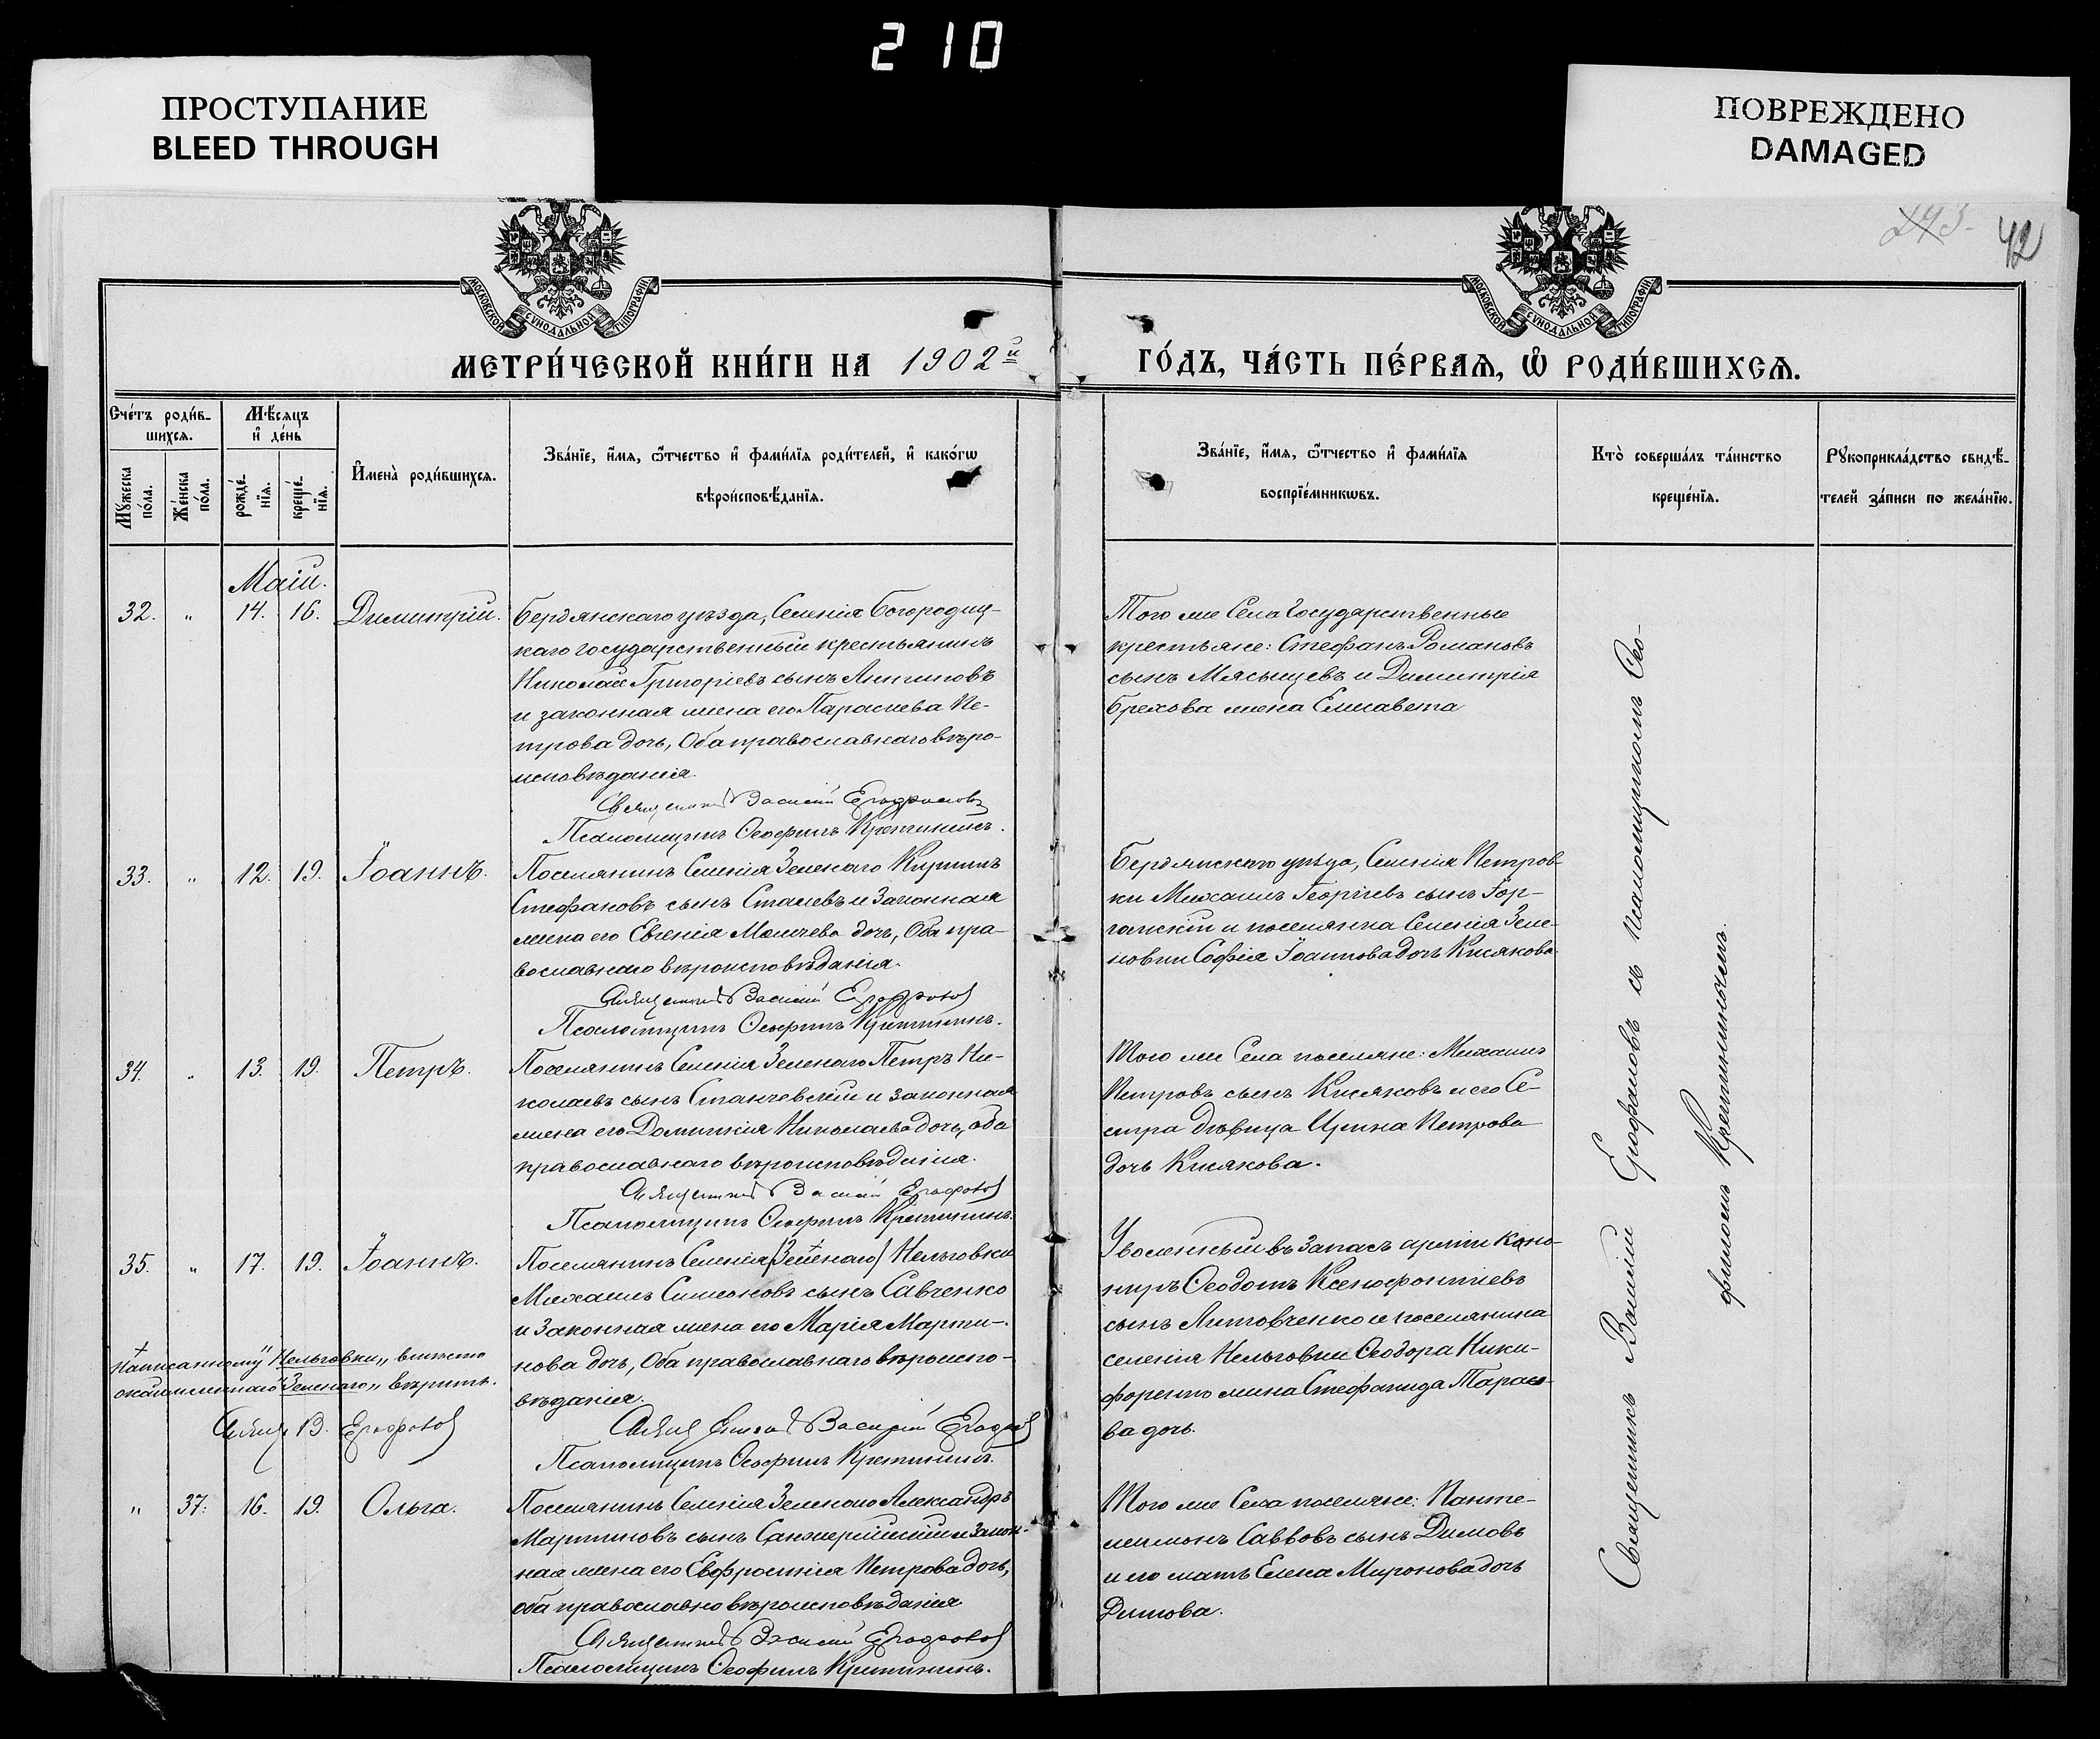 210
ПРОСТУПАНИЕ
BLEED THROUGH
ПОВРЕЖДЕНО
DAMAGED
243
42
МОСКОВСКОЙ СѴНОДАЛЬНОЙ ТИПОГРАФІИ
МОСКОВСКОЙ СѴНОДАЛЬНОЙ ТИПОГРАФІИ
МЕТРИ́ЧЕСКОЙ КНИ́ГИ НА 1902й
ГО́ДЪ, ЧА́СТЬ ПЕ́РВАѦ, Ѽ РОДИ́ВШИХСѦ.
Сче́тъ роди́в-
шихсѧ.
Мꙋ́жеска по́ла.
Же́нска по́ла.
Мѣ́сяцъ
и҆ де́нь
рожде́-
нїѧ.
креще́-
нїѧ.
И҆мена̀ роди́вшихсѧ.
Зва́нїе, и҆́мѧ, ѻ҆́тчество и҆ фами́лїѧ роди́телей, и҆ како́гѡ
вѣроисповѣ́данїѧ.
Зва́нїе, и҆́мѧ, ѻ҆́тчество и҆ фами́лїѧ
воспрїе́мникѡвъ.
Кто̀ соверша́лъ та́инство
креще́нїѧ.
Рꙋкоприкла́дство свидѣ́-
телей за́писи по жела́нїю.
Маій.
32. " 14. 16. Димитрій.
Бердянскаго уѣзда, Селенія Богородиц-
каго государственный крестьянинъ
Николай Григоріевъ сынъ Антиповъ
и законная жена его Параскева Пе-
трова дочь, Оба православнаго вѣро-
исповѣданія.
Священникъ Василій Ерофаловъ
Псаломщикъ Ѳеофилъ Кретининъ.
Того же Села Государственные
крестьяне: Стефанъ Романовъ
сынъ Мясищевъ и Димитрія
Брехова жена Елисавета
33. " 12. 19. Іоаннъ.
Поселянинъ Селенія Зеленаго Кириллъ
Стефановъ сынъ Сталевъ и Законная
жена его Евгенія Моисеева дочь, Оба пра-
вославнаго вѣроисповѣданія.
Священникъ Василій Ерофаловъ
Псаломщикъ Ѳеофилъ Кретининъ.
Бердянскаго уѣзда, Селенія Петров-
ки Михаилъ Георгіевъ сынъ Іор-
ганскій и поселянка Селенія Зеле-
новки Софія Іоаннова дочь Кисякова
34. " 13. 19. Петръ.
Поселянинъ Селенія Зеленаго Петръ Ни-
колаевъ сынъ Станчевскій и законная
жена его Домникія Николаева дочь, оба
православнаго вѣроисповѣданія.
Священникъ Василій Ерофаловъ
Псаломщикъ Ѳеофилъ Кретининъ.
Того же Села поселяне: Михаилъ
Петровъ сынъ Кисяковъ и его Се-
стра дѣвица Ирина Петрова
дочь Кисякова.
35. " 17. 19. Іоаннъ.
Поселянинъ Селенія (Зеленаго) Нельговки
Михаилъ Симеоновъ сынъ Савченко
и Законная жена его Марія Марти-
нова дочь, Оба православнаго вѣроиспо-
вѣданія.
Священникъ Василій Ерофаловъ
Псаломщикъ Ѳеофилъ Кретининъ.
Написанному "Нельговки" вмѣсто
"Зеленаго" вѣрить.
Свящ. В. Ерофаловъ
Уволенный въ запасъ арміи Кано-
ниръ Ѳеодотъ Ксенофонтіевъ
сынъ Литовченко и поселянина
селенія Нельговки Ѳеодора Ники-
форенко жена Стефанида Тарасо-
ва дочь.
" 37. 16. 19. Ольга.
Поселянинъ Селенія Зеленаго Александръ
Мартиновъ сынъ и закон-
ная жена его Евфросинія Петрова дочь,
оба православно вѣроисповѣданія
Священникъ Василій Ерофаловъ
Псаломщикъ Ѳеофилъ Кретининъ.
Того же Села поселяне: Панте-
леимонъ Саввовъ сынъ Димовъ
и его мать Елена Миронова дочь
Димова.
Священникъ Василій Ерофаловъ съ псаломщикомъ Ѳео-
филомъ Кретининымъ.